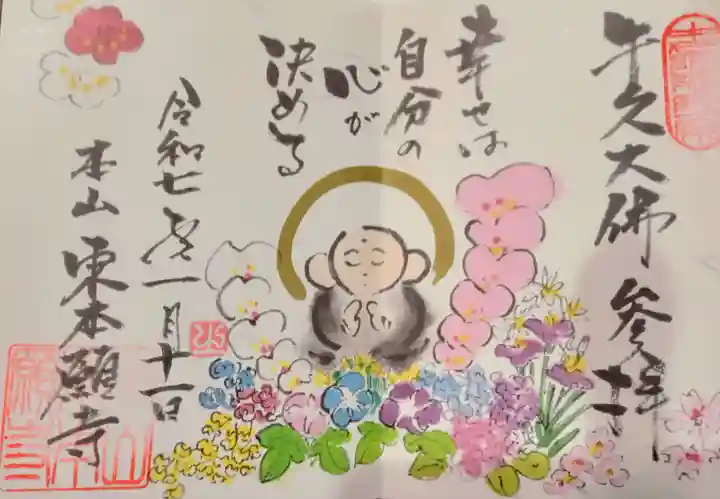 牛久大佛参拝
幸せは
自分の
心が
決める
令和七年一月十一日
本山東本願寺